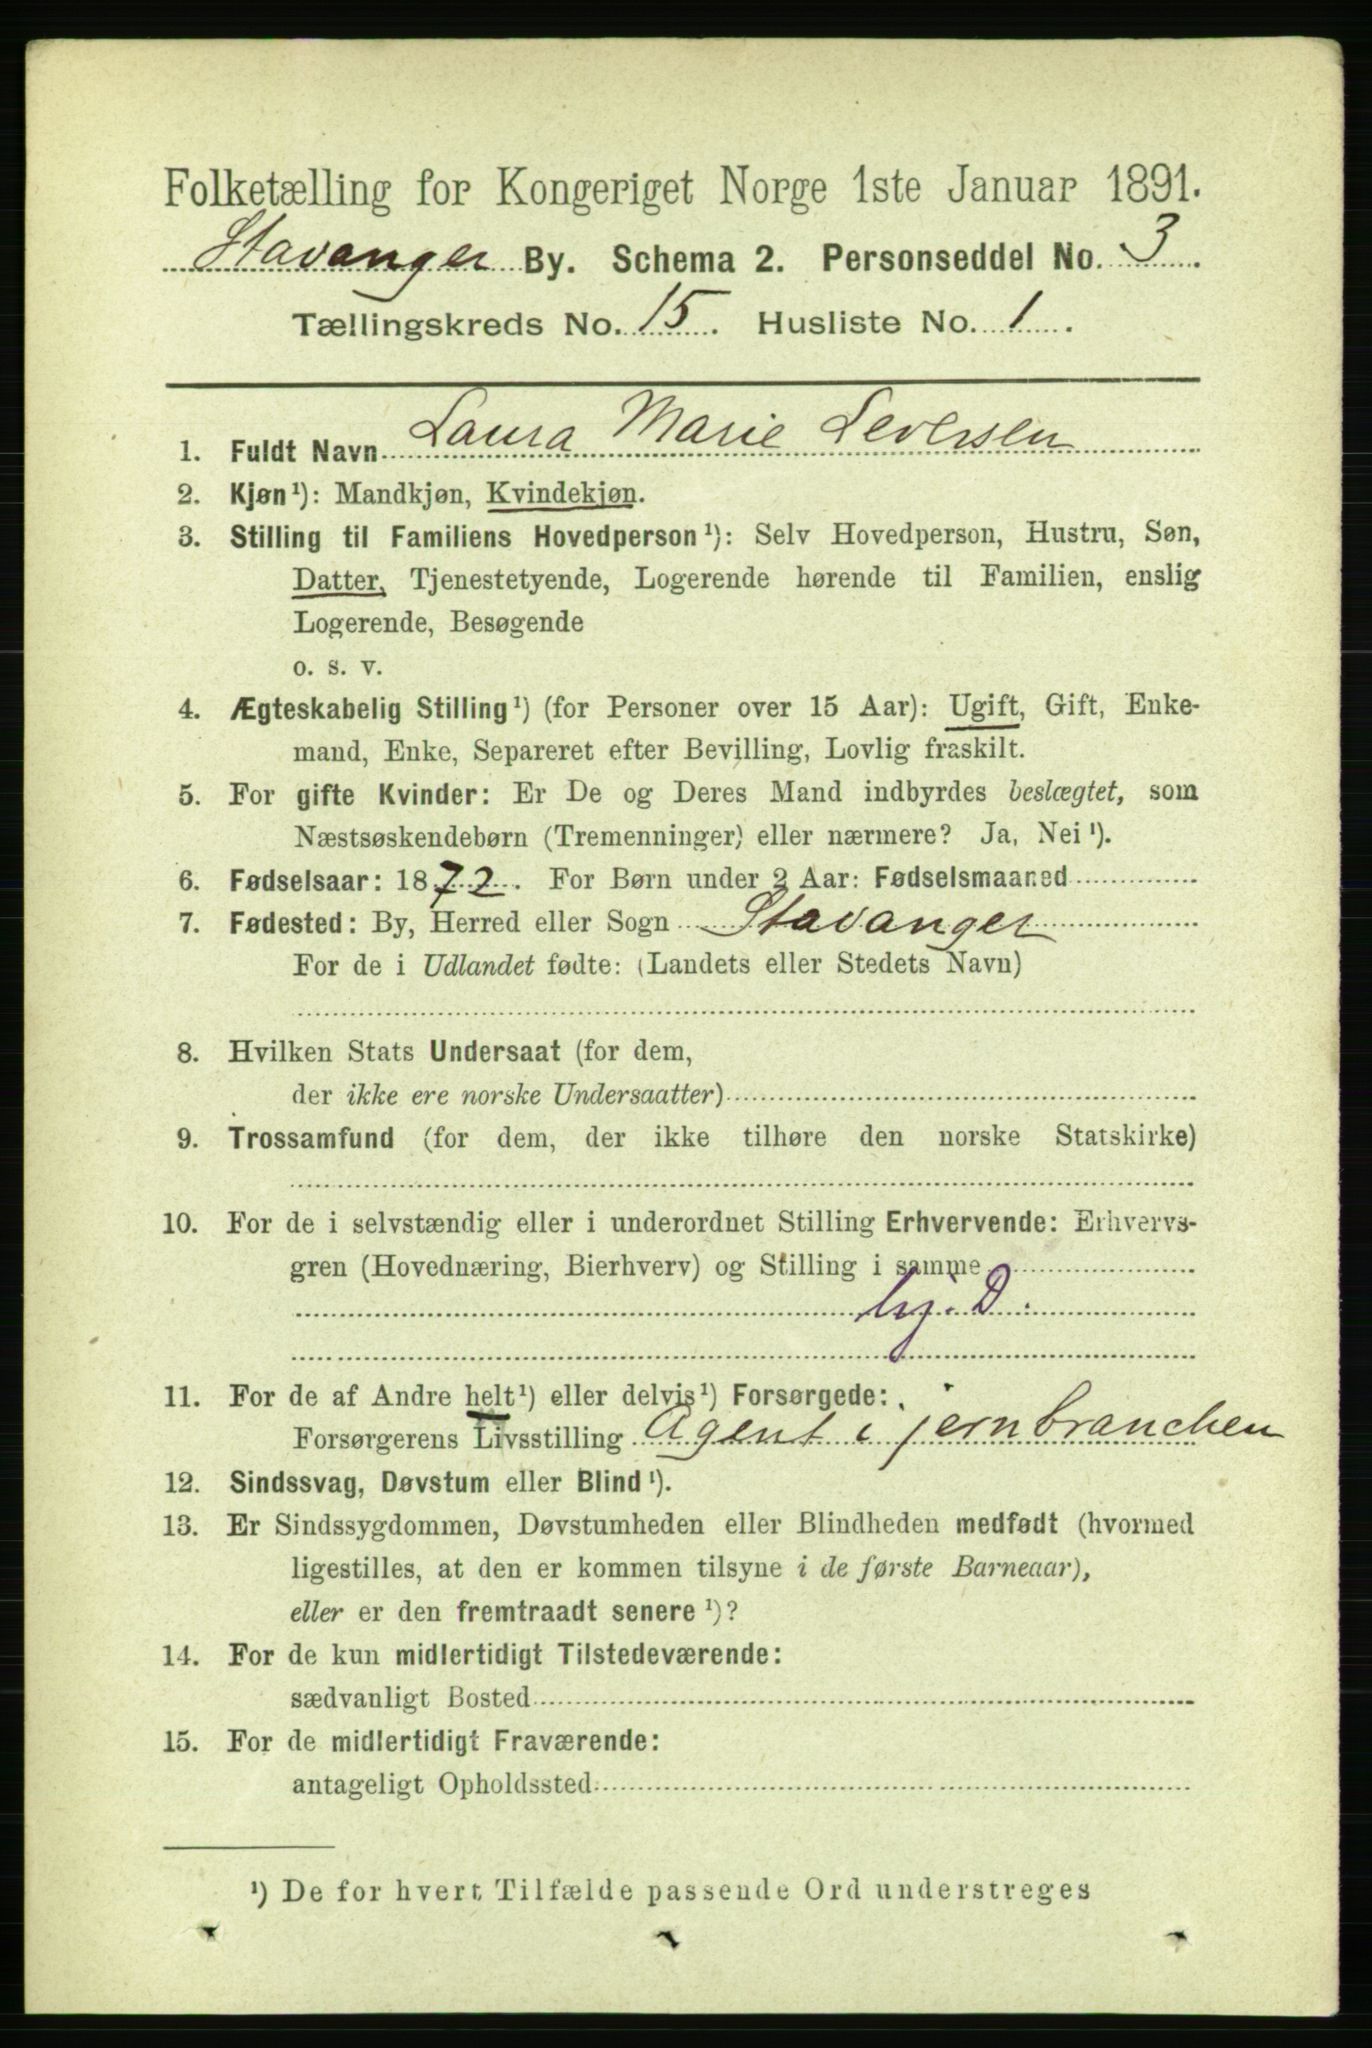 Folketælling for Kongeriget Norge 1ste Januar 1891.
Stavanger By. Schema 2. Personseddel No. 3.
Tællingskreds No. 15. Husliste No. 1.
1. Fuldt Navn Laura Marie Severssen
2. Kjøn¹): Mandkjøn, Kvindekjøn.
3. Stilling til Familiens Hovedperson¹): Selv Hovedperson, Hustru, Søn,
Datter, Tjenestetyende, Logerende hørende til Familien, enslig
Logerende, Besøgende
o. s. v.
4. Ægteskabelig Stilling¹) (for Personer over 15 Aar): Ugift, Gift, Enke-
mand, Enke, Separeret efter Bevilling, Lovlig fraskilt.
5. For gifte Kvinder: Er De og Deres Mand indbyrdes beslægtet, som
Næstsøskendebørn (Tremenninger) eller nærmere? Ja, Nei¹).
6. Fødselsaar: 1872. For Børn under 2 Aar: Fødselsmaaned
7. Fødested: By, Herred eller Sogn Stavanger
For de i Udlandet fødte: (Landets eller Stedets Navn)
8. Hvilken Stats Undersaat (for dem,
der ikke ere norske Undersaatter)
9. Trossamfund (for dem, der ikke tilhøre den norske Statskirke)
10. For de i selvstændig eller i underordnet Stilling Erhvervende: Erhvervs-
gren (Hovednæring, Bierhverv) og Stilling i samme
hj. D.
11. For de af Andre helt¹) eller delvis¹) Forsørgede:
Forsørgerens Livsstilling Agent i jernbranchen
12. Sindssvag, Døvstum eller Blind¹).
13. Er Sindssygdommen, Døvstumheden eller Blindheden medfødt (hvormed
ligestilles, at den er kommen tilsyne i de første Barneaar),
eller er den fremtraadt senere¹)?
14. For de kun midlertidigt Tilstedeværende:
sædvanligt Bosted
15. For de midlertidigt Fraværende:
antageligt Opholdssted
¹) De for hvert Tilfælde passende Ord understreges